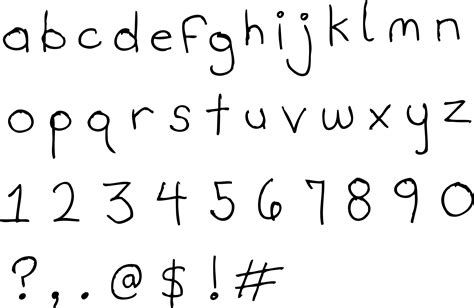 a b c d e f g h i j k l m n
o p q r s t u v w x y z
1 2 3 4 5 6 7 8 9 0
? , . @ $ ! #